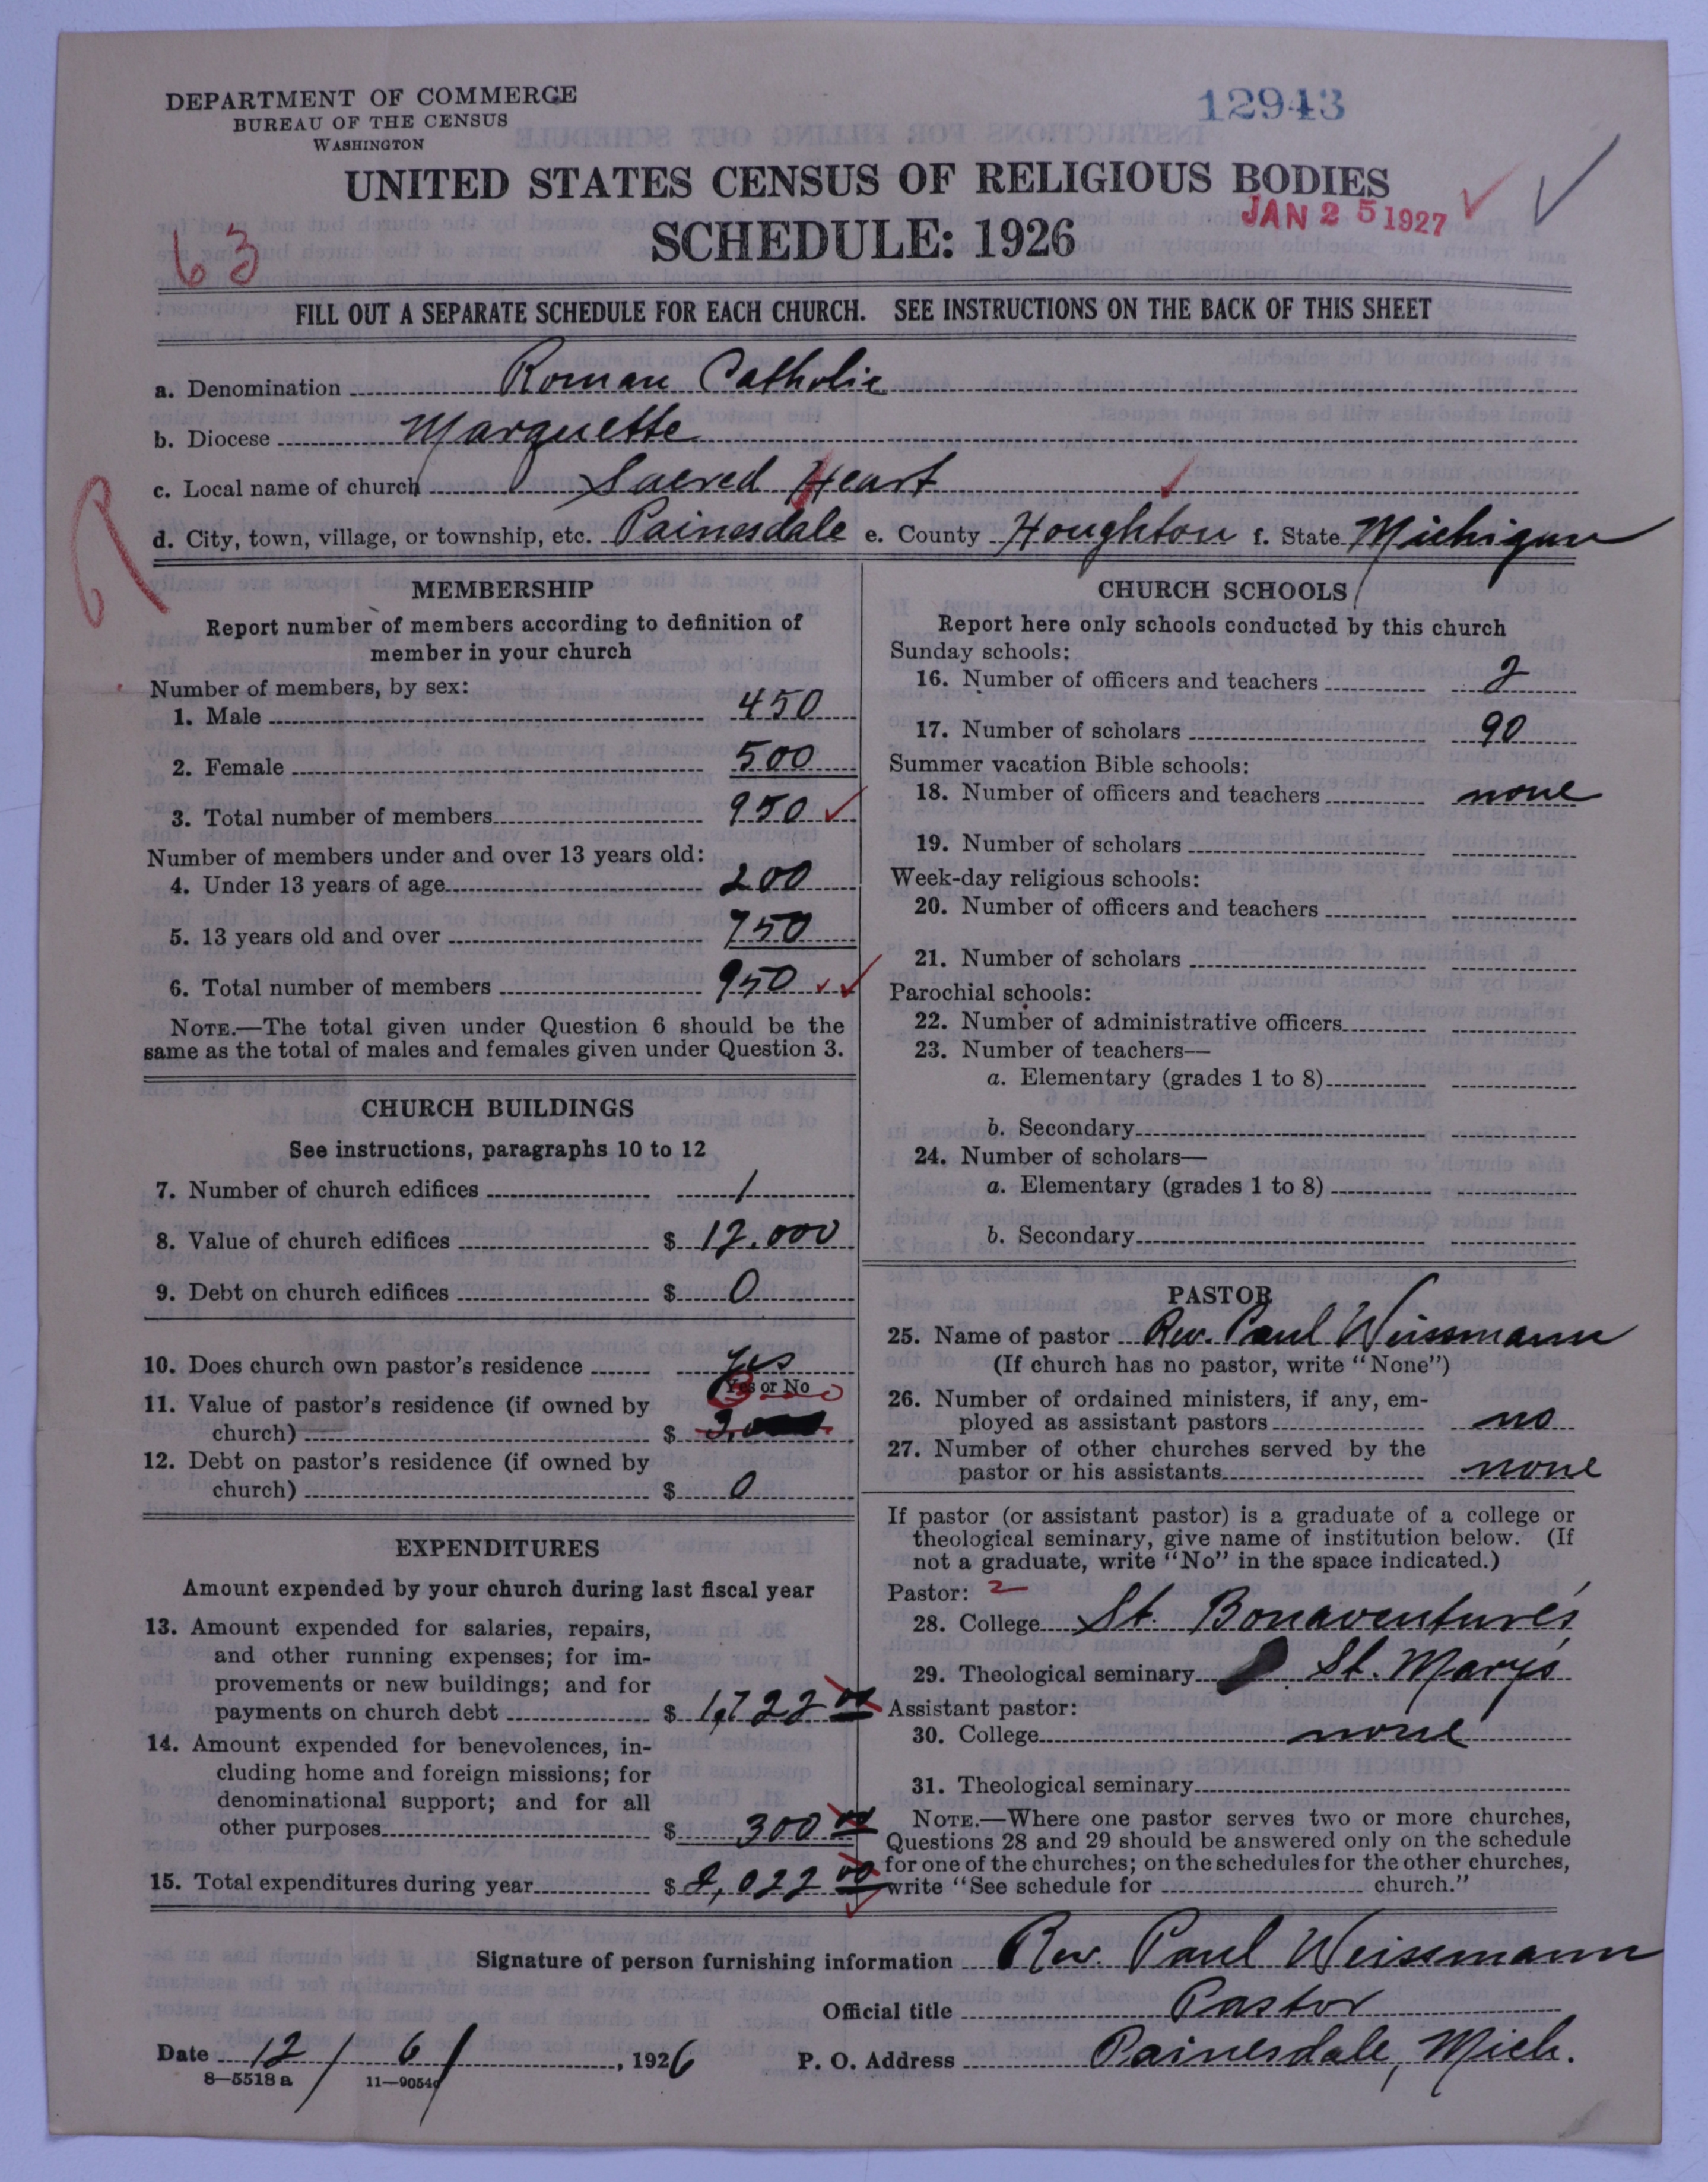 DEPARTMENT OF COMMERCE
BUREAU OF THE CENSUS
WASHINGTON
12943
UNITED STATES CENSUS OF RELIGIOUS BODIES
SCHEDULE: 1926
JAN 25 1927
63
FILL OUT A SEPARATE SCHEDULE FOR EACH CHURCH. SEE INSTRUCTIONS ON THE BACK OF THIS SHEET
a. Denomination Roman Catholic
b. Diocese Marquette
c. Local name of church Sacred Heart
d. City, town, village, or township, etc. Painesdale e. County Houghton f. State Michigan
MEMBERSHIP
Report number of members according to definition of
member in your church
Number of members, by sex:
1. Male 450
2. Female 500
3. Total number of members 950
Number of members under and over 13 years old:
4. Under 13 years of age 200
5. 13 years old and over 750
6. Total number of members 950
NOTE.—The total given under Question 6 should be the
same as the total of males and females given under Question 3.
CHURCH BUILDINGS
See instructions, paragraphs 10 to 12
7. Number of church edifices 1
8. Value of church edifices $ 12.000
9. Debt on church edifices $ 0
10. Does church own pastor's residence yes
Yes or No
11. Value of pastor's residence (if owned by
church) $
12. Debt on pastor's residence (if owned by
church) $ 0
EXPENDITURES
Amount expended by your church during last fiscal year
13. Amount expended for salaries, repairs,
and other running expenses; for im-
provements or new buildings; and for
payments on church debt $ 1,722 00
14. Amount expended for benevolences, in-
cluding home and foreign missions; for
denominational support; and for all
other purposes $ 300 00
15. Total expenditures during year $ 2,022 00
CHURCH SCHOOLS
Report here only schools conducted by this church
Sunday schools:
16. Number of officers and teachers 2
17. Number of scholars 90
Summer vacation Bible schools:
18. Number of officers and teachers none
19. Number of scholars
Week-day religious schools:
20. Number of officers and teachers
21. Number of scholars
Parochial schools:
22. Number of administrative officers
23. Number of teachers—
a. Elementary (grades 1 to 8)
b. Secondary
24. Number of scholars—
a. Elementary (grades 1 to 8)
b. Secondary
PASTOR
25. Name of pastor Rev. Paul Weissmann
(If church has no pastor, write "None")
26. Number of ordained ministers, if any, em-
ployed as assistant pastors no
27. Number of other churches served by the
pastor or his assistants none
If pastor (or assistant pastor) is a graduate of a college or
theological seminary, give name of institution below. (If
not a graduate, write "No" in the space indicated.)
Pastor: 2
28. College St. Bonaventure's
29. Theological seminary St. Mary's
Assistant pastor:
30. College none
31. Theological seminary
NOTE.—Where one pastor serves two or more churches,
Questions 28 and 29 should be answered only on the schedule
for one of the churches; on the schedules for the other churches,
write "See schedule for church."
Signature of person furnishing information Rev. Paul Weissmann
Official title Pastor
Date 12 / 6 / , 1926 P. O. Address Painesdale, Mich.
8—5518 a 11—9054